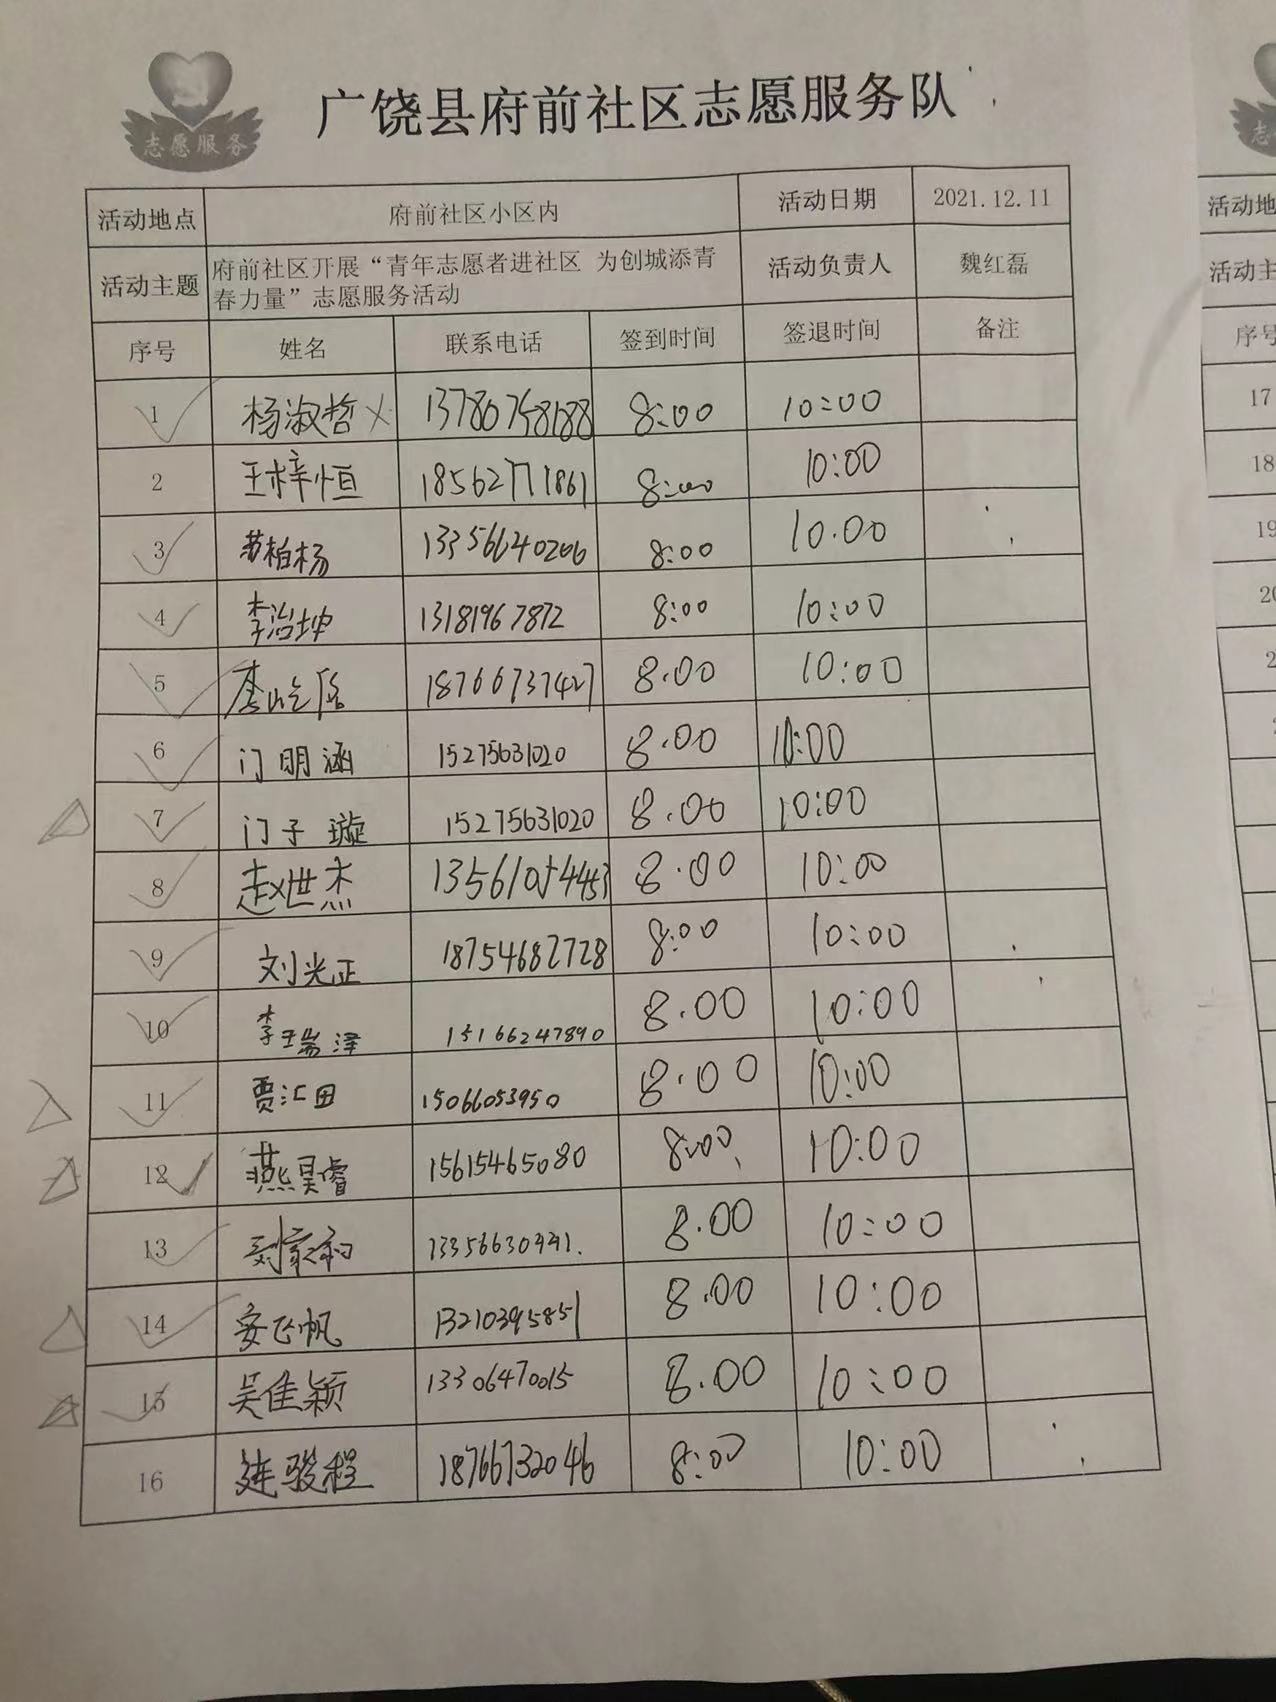 志愿服务
广饶县府前社区志愿服务队
活动地点 府前社区小区内 活动日期 2021.12.11
活动主题 府前社区开展“青年志愿者进社区 为创城添青
春力量”志愿服务活动 活动负责人 魏红磊
序号 姓名 联系电话 签到时间 签退时间 备注
1 杨淑哲 8:00 10:00
2 王梓恒 18562771861 8:00 10:00
3 苏柏杨 13356640206 8:00 10.00
4 李治坤 13181967872 8:00 10:00
5 18766737427 8.00 10:00
6 门明涵 15275631020 8.00 10:00
7 门子璇 15275631020 8.00 10:00
8 赵世杰 13561054453 8.00 10:00
9 刘光正 18754682728 8:00 10:00
10 李瑞泽 15166247890 8.00 10:00
11 贾汇田 15066053950 8.00 10:00
12 燕昊睿 15615465080 8:00 10:00
13 刘家和 8.00 10:00
14 安飞帆 13210395851 8.00 10:00
15 吴佳颖 13306470015 8.00 10:00
16 骏程 18766732046 8:00 10:00
活动地
活动主
序号
17
18
19
20
2